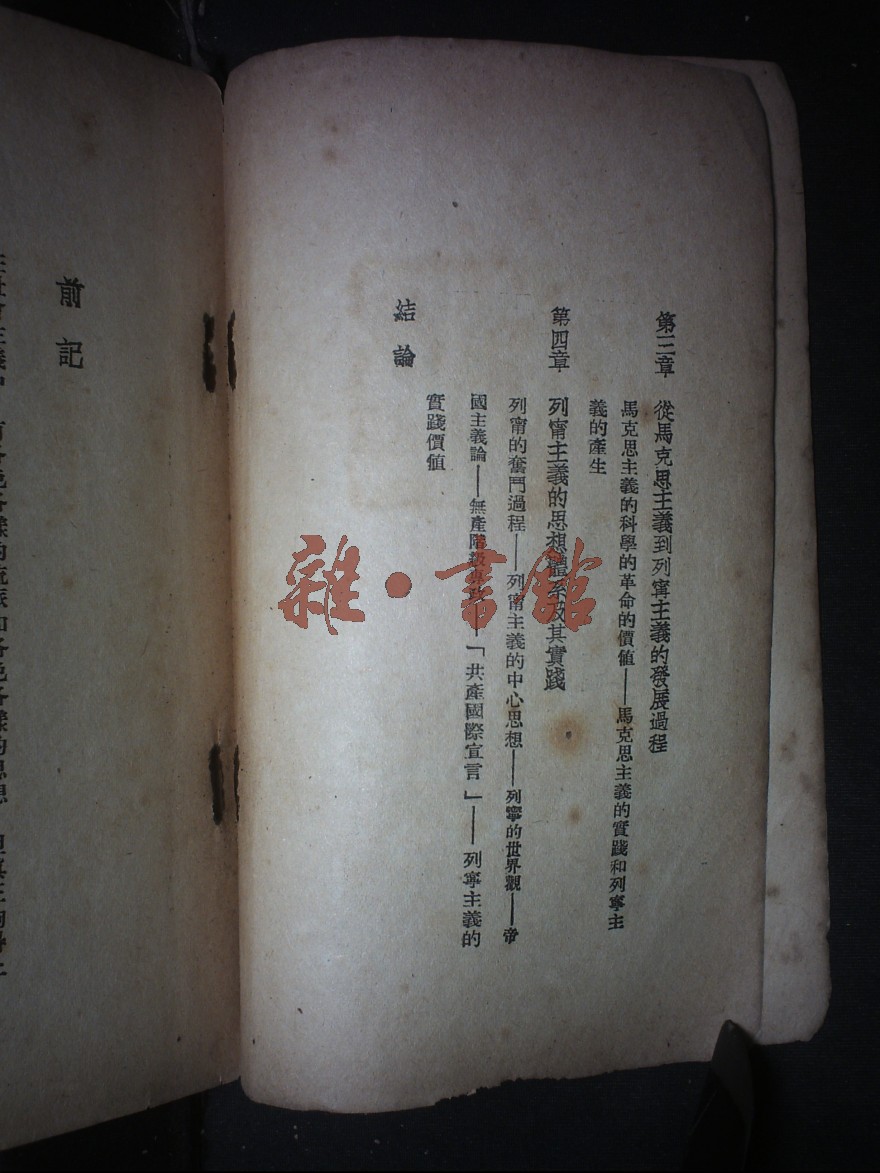 第三章 從馬克思主義到列寧主義的發展過程
馬克思主義的科學的革命的價値——馬克思主義的實踐和列寧主
義的產生
第四章 列甯主義的思想體系及其實踐
列甯的奮鬥過程——列甯主義的中心思想——列寧的世界觀——帝
國主義論——無產階級專政——「共產國際宣言」——列寧主義的
實踐價値
結論
前記
雜·書館